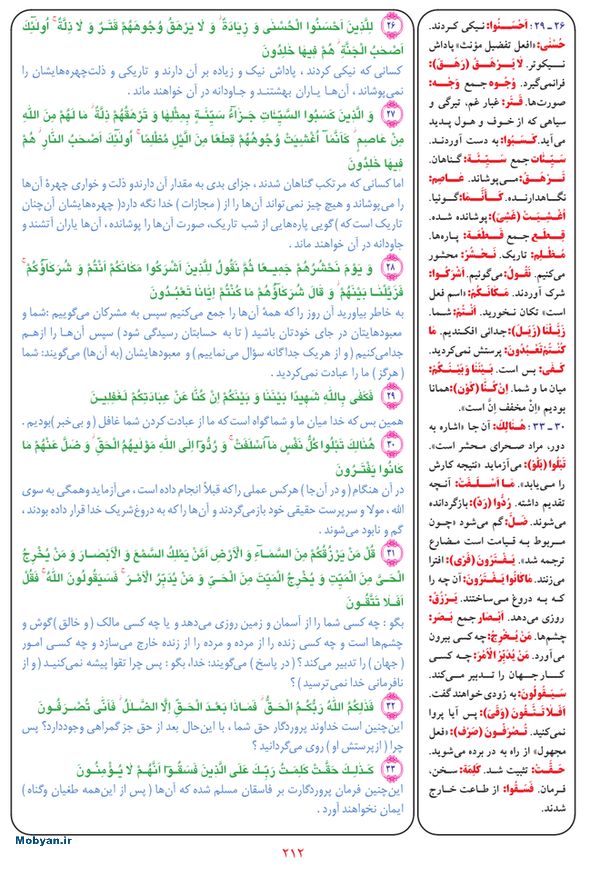 ۲۶ لِلَّذِينَ اَحْسَنُوا الْحُسْنٰى وَ زِيَادَةٌ ۖ وَ لَا يَرْهَقُ وُجُوهَهُمْ قَتَرٌ وَ لَا ذِلَّةٌ ۚ اُولٰئِكَ
اَصْحَابُ الْجَنَّةِ ۖ هُمْ فِيهَا خَالِدُونَ
کسانی که نیکی کردند ، پاداش نیک و زیاده بر آن دارند و تاریکی و ذلت‌چهره‌هایشان را
نمی‌پوشاند ، آن‌ها یاران بهشتند و جاودانه در آن خواهند ماند .
۲۷ وَ الَّذِينَ كَسَبُوا السَّيِّـَٔاتِ جَزَآءُ سَيِّئَةٍ بِمِثْلِهَا وَ تَرْهَقُهُمْ ذِلَّةٌ ۖ مَا لَهُمْ مِنَ اللهِ
مِنْ عَاصِمٍ ۖ كَاَنَّمَآ اُغْشِيَتْ وُجُوهُهُمْ قِطَعًا مِنَ الَّيْلِ مُظْلِمًا ۚ اُولٰئِكَ اَصْحَابُ النَّارِ ۖ هُمْ
فِيهَا خَالِدُونَ
اما کسانی که مرتکب گناهان شدند ، جزای بدی به مقدار آن دارندو ذلت و خواری چهرهٔ آن‌ها
را می‌پوشاند و هیچ چیز نمی‌تواند آن‌ها را از ( مجازات ) خدا نگه دارد( چهره‌هایشان آن‌چنان
تاریک است که ) گویی پاره‌هایی از شب تاریک، صورت آن‌ها را پوشانده ، آن‌ها یاران آتشند و
جاودانه در آن خواهند ماند .
۲۸ وَ يَوْمَ نَحْشُرُهُمْ جَمِيعًا ثُمَّ نَقُولُ لِلَّذِينَ اَشْرَكُوا مَكَانَكُمْ اَنْتُمْ وَ شُرَكَآؤُكُمْ ۚ
فَزَيَّلْنَا بَيْنَهُمْ ۖ وَ قَالَ شُرَكَآؤُهُمْ مَا كُنْتُمْ اِيَّانَا تَعْبُدُونَ
به خاطر بیاورید آن روز را که همهٔ آن‌ها را جمع می‌کنیم سپس به مشرکان می‌گوییم :شما و
معبودهایتان در جای خودتان باشید ( تا به حسابتان رسیدگی شود ) سپس آن‌ها را ازهم
جدامی‌کنیم ( و از هریک جداگانه سؤال می‌نماییم ) و معبودهایشان (به آن‌ها) می‌گویند: شما
( هرگز ) ما را عبادت نمی‌کردید .
۲۹ فَكَفٰى بِاللهِ شَهِيدًا بَيْنَنَا وَ بَيْنَكُمْ اِنْ كُنَّا عَنْ عِبَادَتِكُمْ لَغَافِلِينَ
همین بس که خدا میان ما و شماگواه است که ما از عبادت کردن شما غافل ( و بی‌خبر )بودیم .
۳۰ هُنَالِكَ تَبْلُوا كُلُّ نَفْسٍ مَآ اَسْلَفَتْ ۚ وَ رُدُّوٓا اِلَى اللهِ مَوْلٰيهُمُ الْحَقِّ ۖ وَ ضَلَّ عَنْهُمْ مَا
كَانُوا يَفْتَرُونَ
در آن هنگام ( و در آن‌جا ) هرکس عملی را که قبلاً انجام داده است ، می‌آزماید وهمگی به سوی
الله ، مولا و سرپرست حقیقی خود بازمی‌گردند و آن‌ها را که به دروغ‌شریک خدا قرار داده بودند ،
گم و نابود می‌شوند .
۳۱ قُلْ مَنْ يَرْزُقُكُمْ مِنَ السَّمَآءِ وَ الْاَرْضِ اَمَّنْ يَمْلِكُ السَّمْعَ وَ الْاَبْصَارَ وَ مَنْ يُخْرِجُ
الْحَىَّ مِنَ الْمَيِّتِ وَ يُخْرِجُ الْمَيِّتَ مِنَ الْحَىِّ وَ مَنْ يُدَبِّرُ الْاَمْرَ ۚ فَسَيَقُولُونَ اللهُ ۚ فَقُلْ
اَفَلَا تَتَّقُونَ
بگو : چه کسی شما را از آسمان و زمین روزی می‌دهد و یا چه کسی مالک ( و خالق ) گوش و
چشم‌ها است و چه کسی زنده را از مرده و مرده را از زنده خارج می‌سازد و چه کسی امور
( جهان ) را تدبیر می‌کند ؟ ( در پاسخ ) می‌گویند: خدا، بگو : پس چرا تقوا پیشه نمی‌کنید ( و از
نافرمانی خدا نمی‌ترسید ) ؟
۳۲ فَذٰلِكُمُ اللهُ رَبُّكُمُ الْحَقُّ ۖ فَمَاذَا بَعْدَ الْحَقِّ اِلَّا الضَّلَالُ ۖ فَاَنّٰى تُصْرَفُونَ
این‌چنین است خداوند پروردگار حق شما ، با این‌حال بعد از حق جز گمراهی وجوددارد؟ پس
چرا ( ازپرستش او ) روی می‌گردانید ؟
۳۳ كَذٰلِكَ حَقَّتْ كَلِمَتُ رَبِّكَ عَلَى الَّذِينَ فَسَقُوٓا اَنَّهُمْ لَا يُؤْمِنُونَ
این‌چنین فرمان پروردگارت بر فاسقان مسلم شده که آن‌ها ( پس از این‌همه طغیان وگناه )
ایمان نخواهند آورد .
۲۶ ـ ۲۹ : اَحْسَنُوا: نیکی کردند.
حُسْنٰی: «افعل تفضیل مؤنث» پاداش
نیکوتر. لَا یَرْهَقُ (رَهَقَ):
فرانمی‌گیرد. وُجُوه جمع وَجْه:
صورت‌ها. قَتَرٌ: غبار غم، تیرگی و
سیاهی که از خوف و هول پدید
می‌آید. کَسَبُوا: به دست آوردند.
سَیِّئَات جمع سَیِّئَة: گناهان.
تَرْهَقُ: می‌پوشاند. عَاصِم:
نگاهدارنده. کَاَنَّمَا: گوئیا.
اُغْشِیَتْ (غَشِیَ): پوشانده شده.
قِطَع جمع قِطْعَة: پاره‌ها.
مُظْلِم: تاریک. نَحْشُرُ: محشور
می‌کنیم. نَقُولُ: می‌گوئیم. اَشْرَکُوا:
شرک آوردند. مَکَانَکُمْ: «اسم فعل
است» تکان نخورید. اَنْتُمْ: شما.
زَیَّلْنَا (زَیَلَ): جدائی افکندیم. مَا
کُنْتُمْ تَعْبُدُونَ: پرستش نمی‌کردید.
کَفٰی: بس است. بَیْنَنَا وَ بَیْنَکُمْ:
میان ما و شما. اِنْ کُنَّا (کَوْن): همانا
بودیم «اِنْ مخفف اِنَّ است».
۳۰ ـ ۳۳ : هُنَالِکَ: آن جا «اشاره به
دور، مراد صحرای محشر است».
تَبْلُوا (بَلْو): می‌آزماید «نتیجه کارش
را می‌یابد». مَا اَسْلَفَتْ: آنچه
تقدیم داشته. رُدُّوا (رَدّ): بازگردانده
می‌شوند. ضَلَّ: گم می‌شود «چون
مربوط به قیامت است مضارع
ترجمه شد». یَفْتَرُونَ (فَرْی): افترا
می‌زنند. مَا کَانُوا یَفْتَرُونَ: آن چه را
که به دروغ می‌ساختند. یَرْزُقُ:
روزی می‌دهد. اَبْصَار جمع بَصَر:
چشم‌ها. مَنْ یُخْرِجُ: چه کسی بیرون
می‌آورد. مَنْ یُدَبِّرُ الْاَمْرَ: چه کسی
کار جهان را تدبیر می‌کند.
سَیَقُولُونَ: به زودی خواهند گفت.
اَفَلَا تَتَّقُونَ (وَقْی): پس آیا پروا
نمی‌کنید. تُصْرَفُونَ (صَرْف): «فعل
مجهول» از راه به در برده می‌شوید.
حَقَّتْ: تثبیت شد. کَلِمَة: سخن،
فرمان. فَسَقُوا: از طاعت خارج
شدند.
Mobyan.ir
۲۱۲